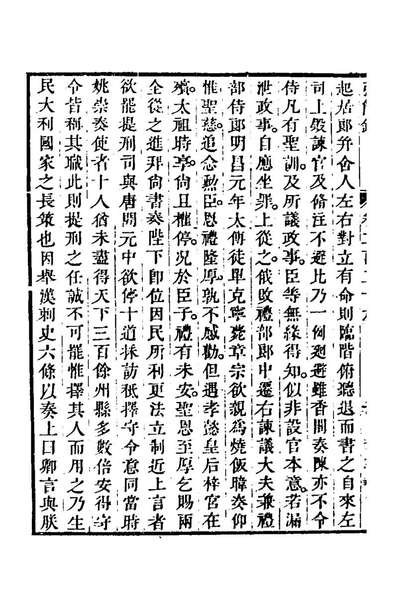 起居郎幷舍人左右對立有命則臨階俯聽退而書之自來左
司上殿諫官及脩注不避比乃一例迴避雖香閣奏陳亦不令
侍凡有聖訓及所議政事臣等無緣得知似非設官本意若漏
泄政事自應坐罪上從之俄改禮部郎中遷右諫議大夫兼禮
部侍郎明昌元年太傅徒單克寧薨章宗欲親爲燒飯暐奏仰
惟聖慈追念勳臣恩禮隆厚孰不感勸但遇孝懿皇后梓宮在
殯太祖時享尙且權停况於臣子禮有未安聖恩至厚乞賜兩
全從之進拜尙書奏陛下卽位因民所利更法立制近上言者
欲罷提刑司與唐開元中欲停十道採訪秪擇守令意同當時
姚崇奏使者十人猶未盡得天下三百餘州縣多數倍安得守
令皆稱其職此則提刑之任誠不可罷惟擇其人而用之乃生
民大利國家之長策也因舉漢刺史六條以奏上曰卿言與朕